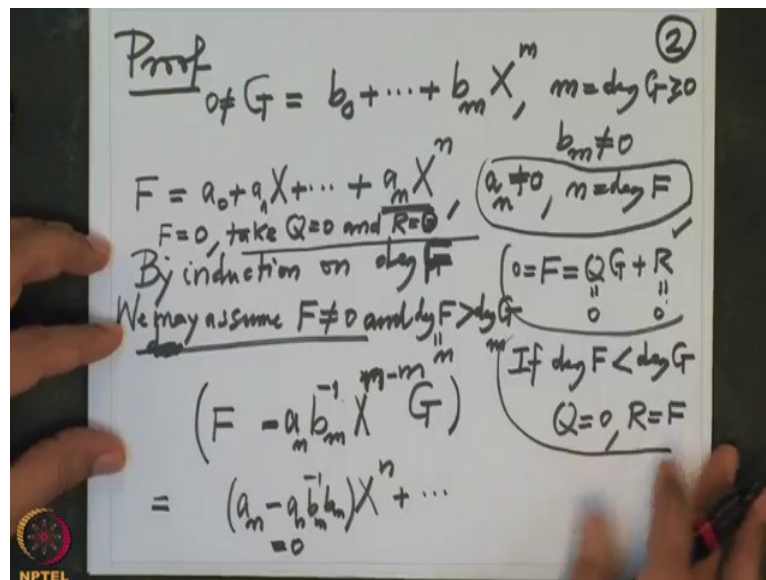 ②
Proof
0≠G = b₀+⋯+bₘXᵐ, m = deg G ≥ 0
bₘ≠0
F = a₀+a₁X+⋯+aₙXⁿ, aₙ≠0, n = deg F
F=0, take Q=0 and R=0
By induction on deg F
0=F=QG+R
0 0
We may assume F≠0 and deg F > deg G
n m
If deg F < deg G
Q=0, R=F
(F − aₙbₘ⁻¹Xⁿ⁻ᵐG)
= (aₙ − aₙbₘ⁻¹bₘ)Xⁿ+⋯
=0
NPTEL